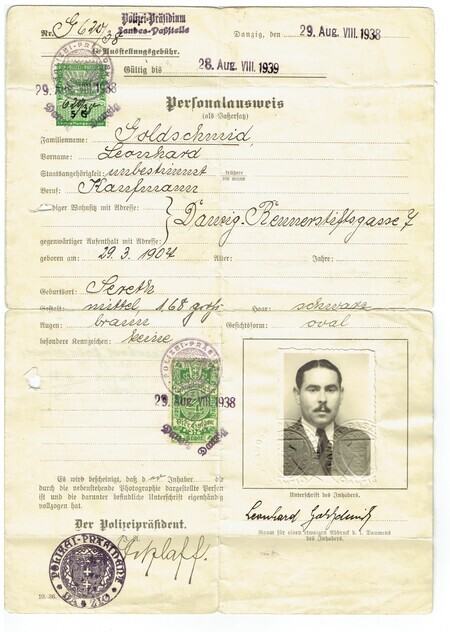 Nr. G 620/38
Polizei-Präsidium
Landes-Paßstelle
Danzig, den 29. Aug. VIII. 1938
Ausstellungsgebühr.
Gültig bis 28. Aug. VIII. 1939
29. Aug. VIII. 1938
Personalausweis
(als Paßersatz)
Familienname: Goldschmid,
Vorname: Leonhard
Staatsangehörigkeit: unbestimmt frühere
Beruf: Kaufmann
ständiger Wohnsitz mit Adresse: Danzig-Rennerstiftsgasse 7
gegenwärtiger Aufenthalt mit Adresse:
geboren am: 29.3.1907 Alter: Jahre:
Geburtsort: Sereth
Gestalt: mittel, 1,68 groß Haar: schwarz
Augen: braun Gesichtsform: oval
besondere Kennzeichen: keine
29. Aug. VIII. 1938
Danzig Danzig
Es wird bescheinigt, daß der Inhaber die
durch die nebenstehende Photographie dargestellte Person
ist und die darunter befindliche Unterschrift eigenhändig
vollzogen hat.
Unterschrift des Inhabers.
Leonhard Goldschmid
Der Polizeipräsident.
Raum für einen etwaigen Abdruck d. l. Daumens
des Inhabers.
POLIZEI-PRÄSIDIUM
DANZIG